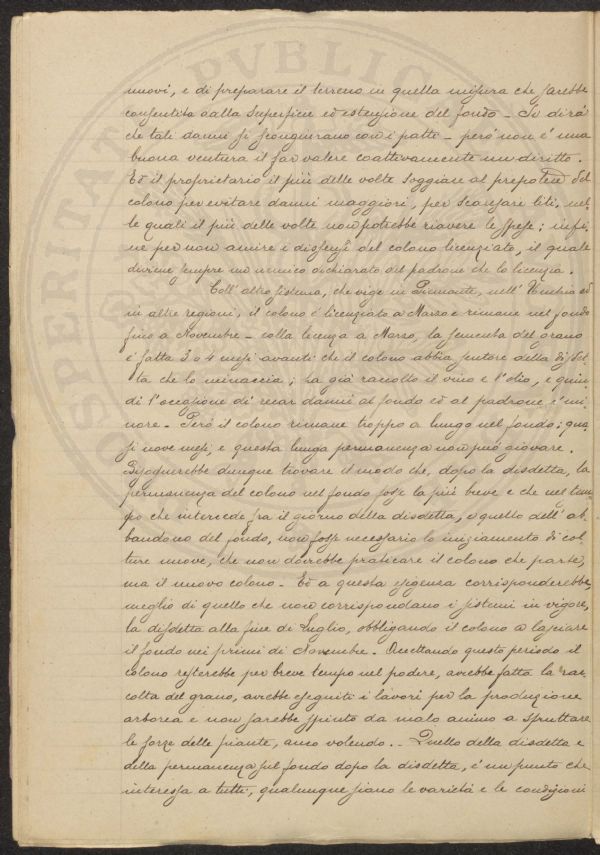 nuovi, e di preparare il terreno in quella misura che sarebbe
consentita dalla superficie ed estensione del fondo - Si dirà
che tali danni si scongiurano con i patti - però non è una
buona ventura il far valere coattivamente un diritto.
Ed il proprietario il più delle volte soggiace al prepotere del
colono per evitare danni maggiori, per scansare liti, nel=
le quali il più delle volte non potrebbe riavere le spese; infi=
ne per non amire i dissensi del colono licenziato, il quale
diviene sempre un nemico dichiarato del padrone che lo licenzia.
Coll'altro sistema, che vige in Piemonte, nell'Umbria ed
in altre regioni, il colono è licenziato a Marzo e rimane nel fondo
fino a Novembre - colla licenza a Marzo, la sementa del grano
è fatta 3 o 4 mesi avanti che il colono abbia sentore della disdet=
ta che lo minaccia; ha già raccolto il vino e l'olio, e quin
di l'occasione di recar danni al fondo ed al padrone è mi=
nore - Però il colono rimane troppo a lungo nel fondo; qua
si nove mesi e questa lunga permanenza non può giovare.
Bisognerebbe dunque trovare il modo che, dopo la disdetta, la
permanenza del colono nel fondo fosse la più breve e che nel tem
po che intercede fra il giorno della disdetta, e quello dell'ab=
bandono del fondo, non fosse necessario lo iniziamento di col
ture nuove, che non dovrebbe praticare il colono che parte,
ma il nuovo colono - Ed a questa esigenza corrisponderebbe,
meglio di quello che non corrispondano i sistemi in vigore,
la disdetta alla fine di Luglio, obbligando il colono a lasciare
il fondo nei primi di Novembre. Accettando questo periodo il
colono resterebbe per breve tempo nel podere, avrebbe fatta la rac
colta del grano, avrebbe eseguiti i lavori per la produzione
arborea e non sarebbe spinto da malo animo a sfruttare
le forze delle piante, anco volendo. - Quello della disdetta e
della permanenza sul fondo dopo la disdetta, è un punto che
interessa a tutti, qualunque siano le varietà e le condizioni
PVBLICA